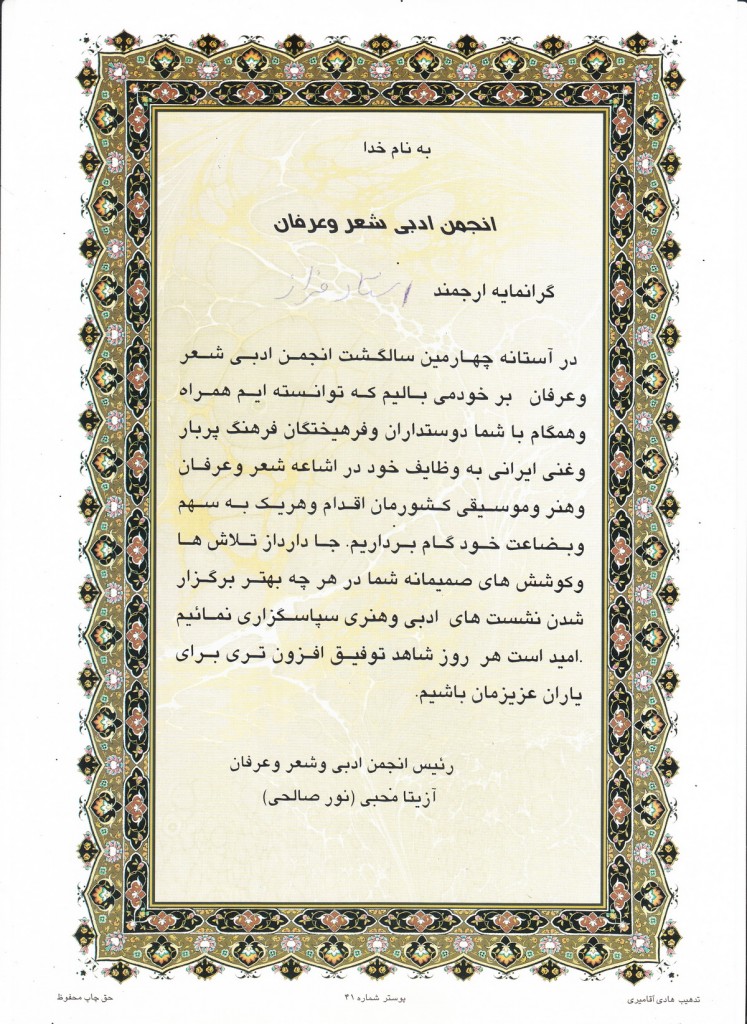 به نام خدا
انجمن ادبی شعر وعرفان
گرانمایه ارجمند استاد فراز
در آستانه چهارمین سالگشت انجمن ادبی شعر
وعرفان بر خودمی بالیم که توانسته ایم همراه
وهمگام با شما دوستداران وفرهیختگان فرهنگ پربار
وغنی ایرانی به وظایف خود در اشاعه شعر وعرفان
وهنر وموسیقی کشورمان اقدام وهریک به سهم
وبضاعت خود گام برداریم. جا دارداز تلاش ها
وکوشش های صمیمانه شما در هر چه بهتر برگزار
شدن نشست های ادبی وهنری سپاسگزاری نمائیم
.امید است هر روز شاهد توفیق افزون تری برای
یاران عزیزمان باشیم.
رئیس انجمن ادبی وشعر وعرفان
آزیتا محبی (نور صالحی)
تذهیب هادی آقامیری
پوستر شماره ۴۱
حق چاپ محفوظ